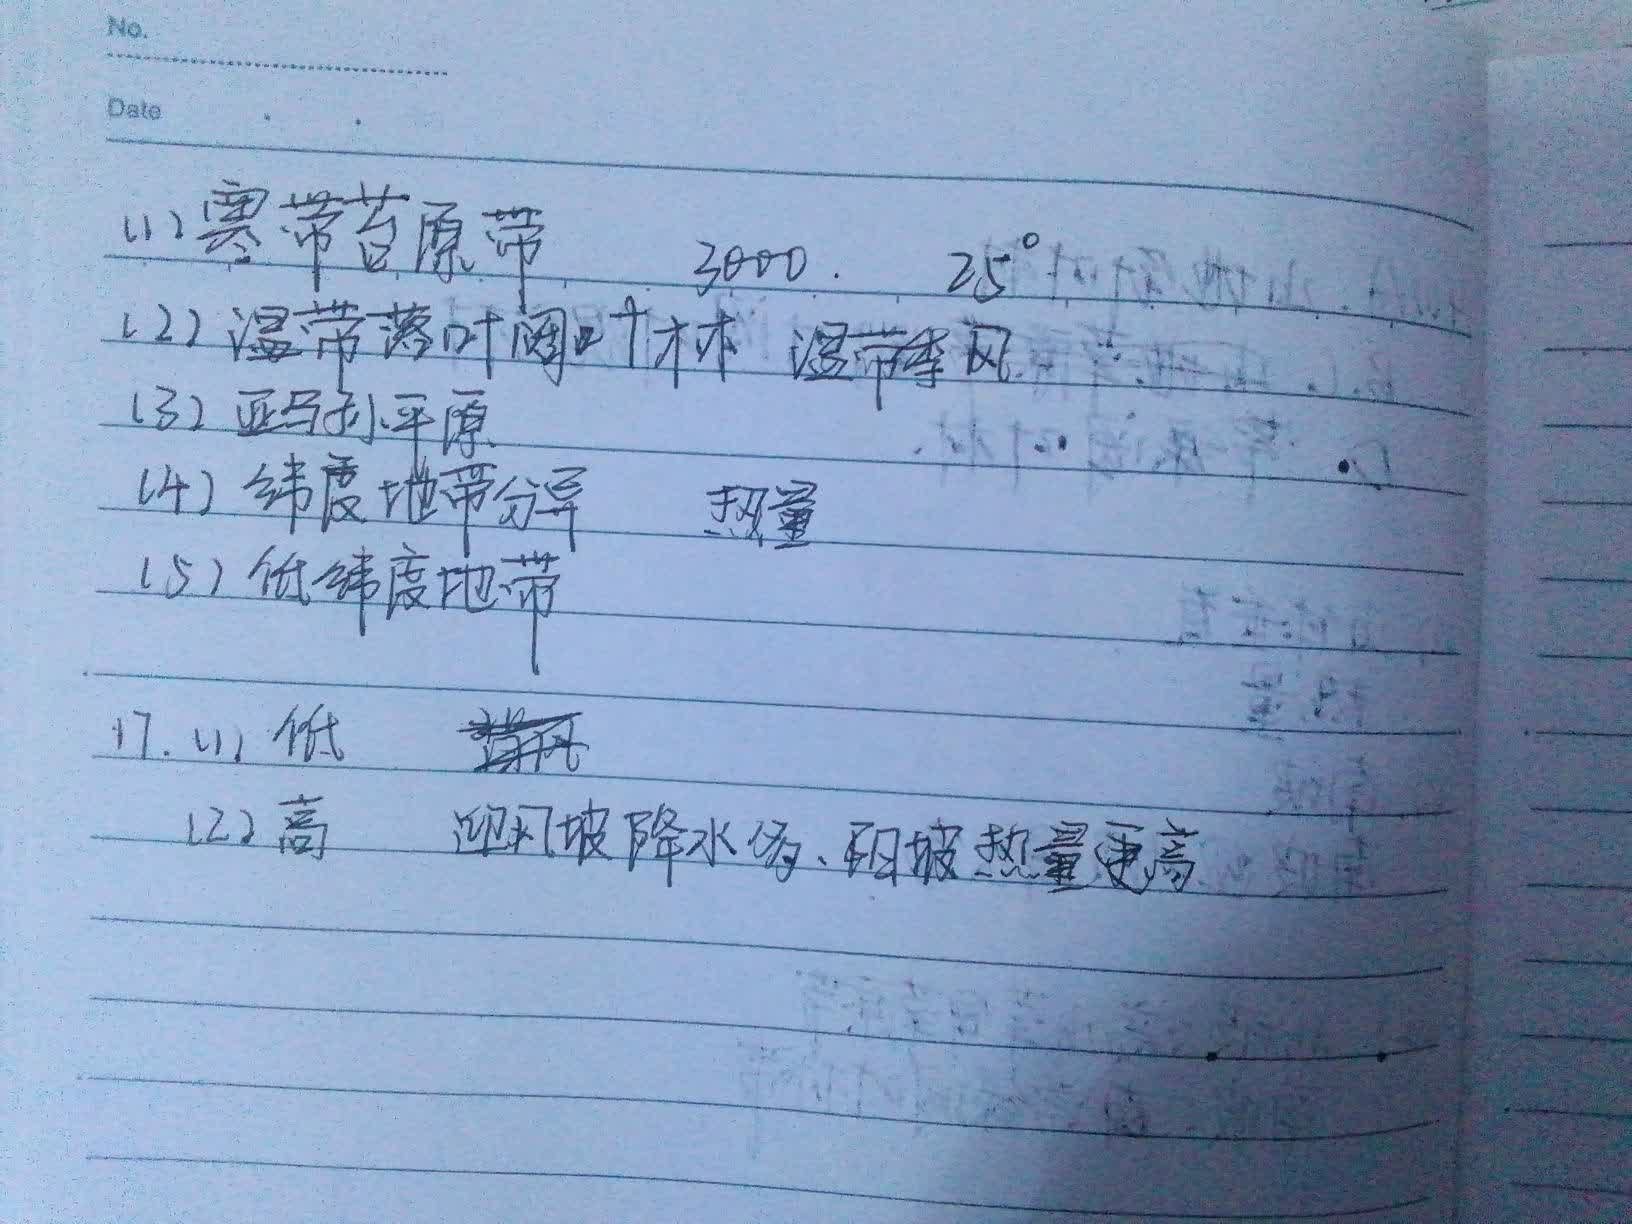 No.
Date
(1) 寒带苔原带 3000. 25°
(2) 温带落叶阔叶林 温带季风
(3) 亚马孙平原
(4) 纬度地带分异 热量
(5) 低纬度地带
17. (1) 低
(2) 高 迎风坡降水多、阳坡热量更高